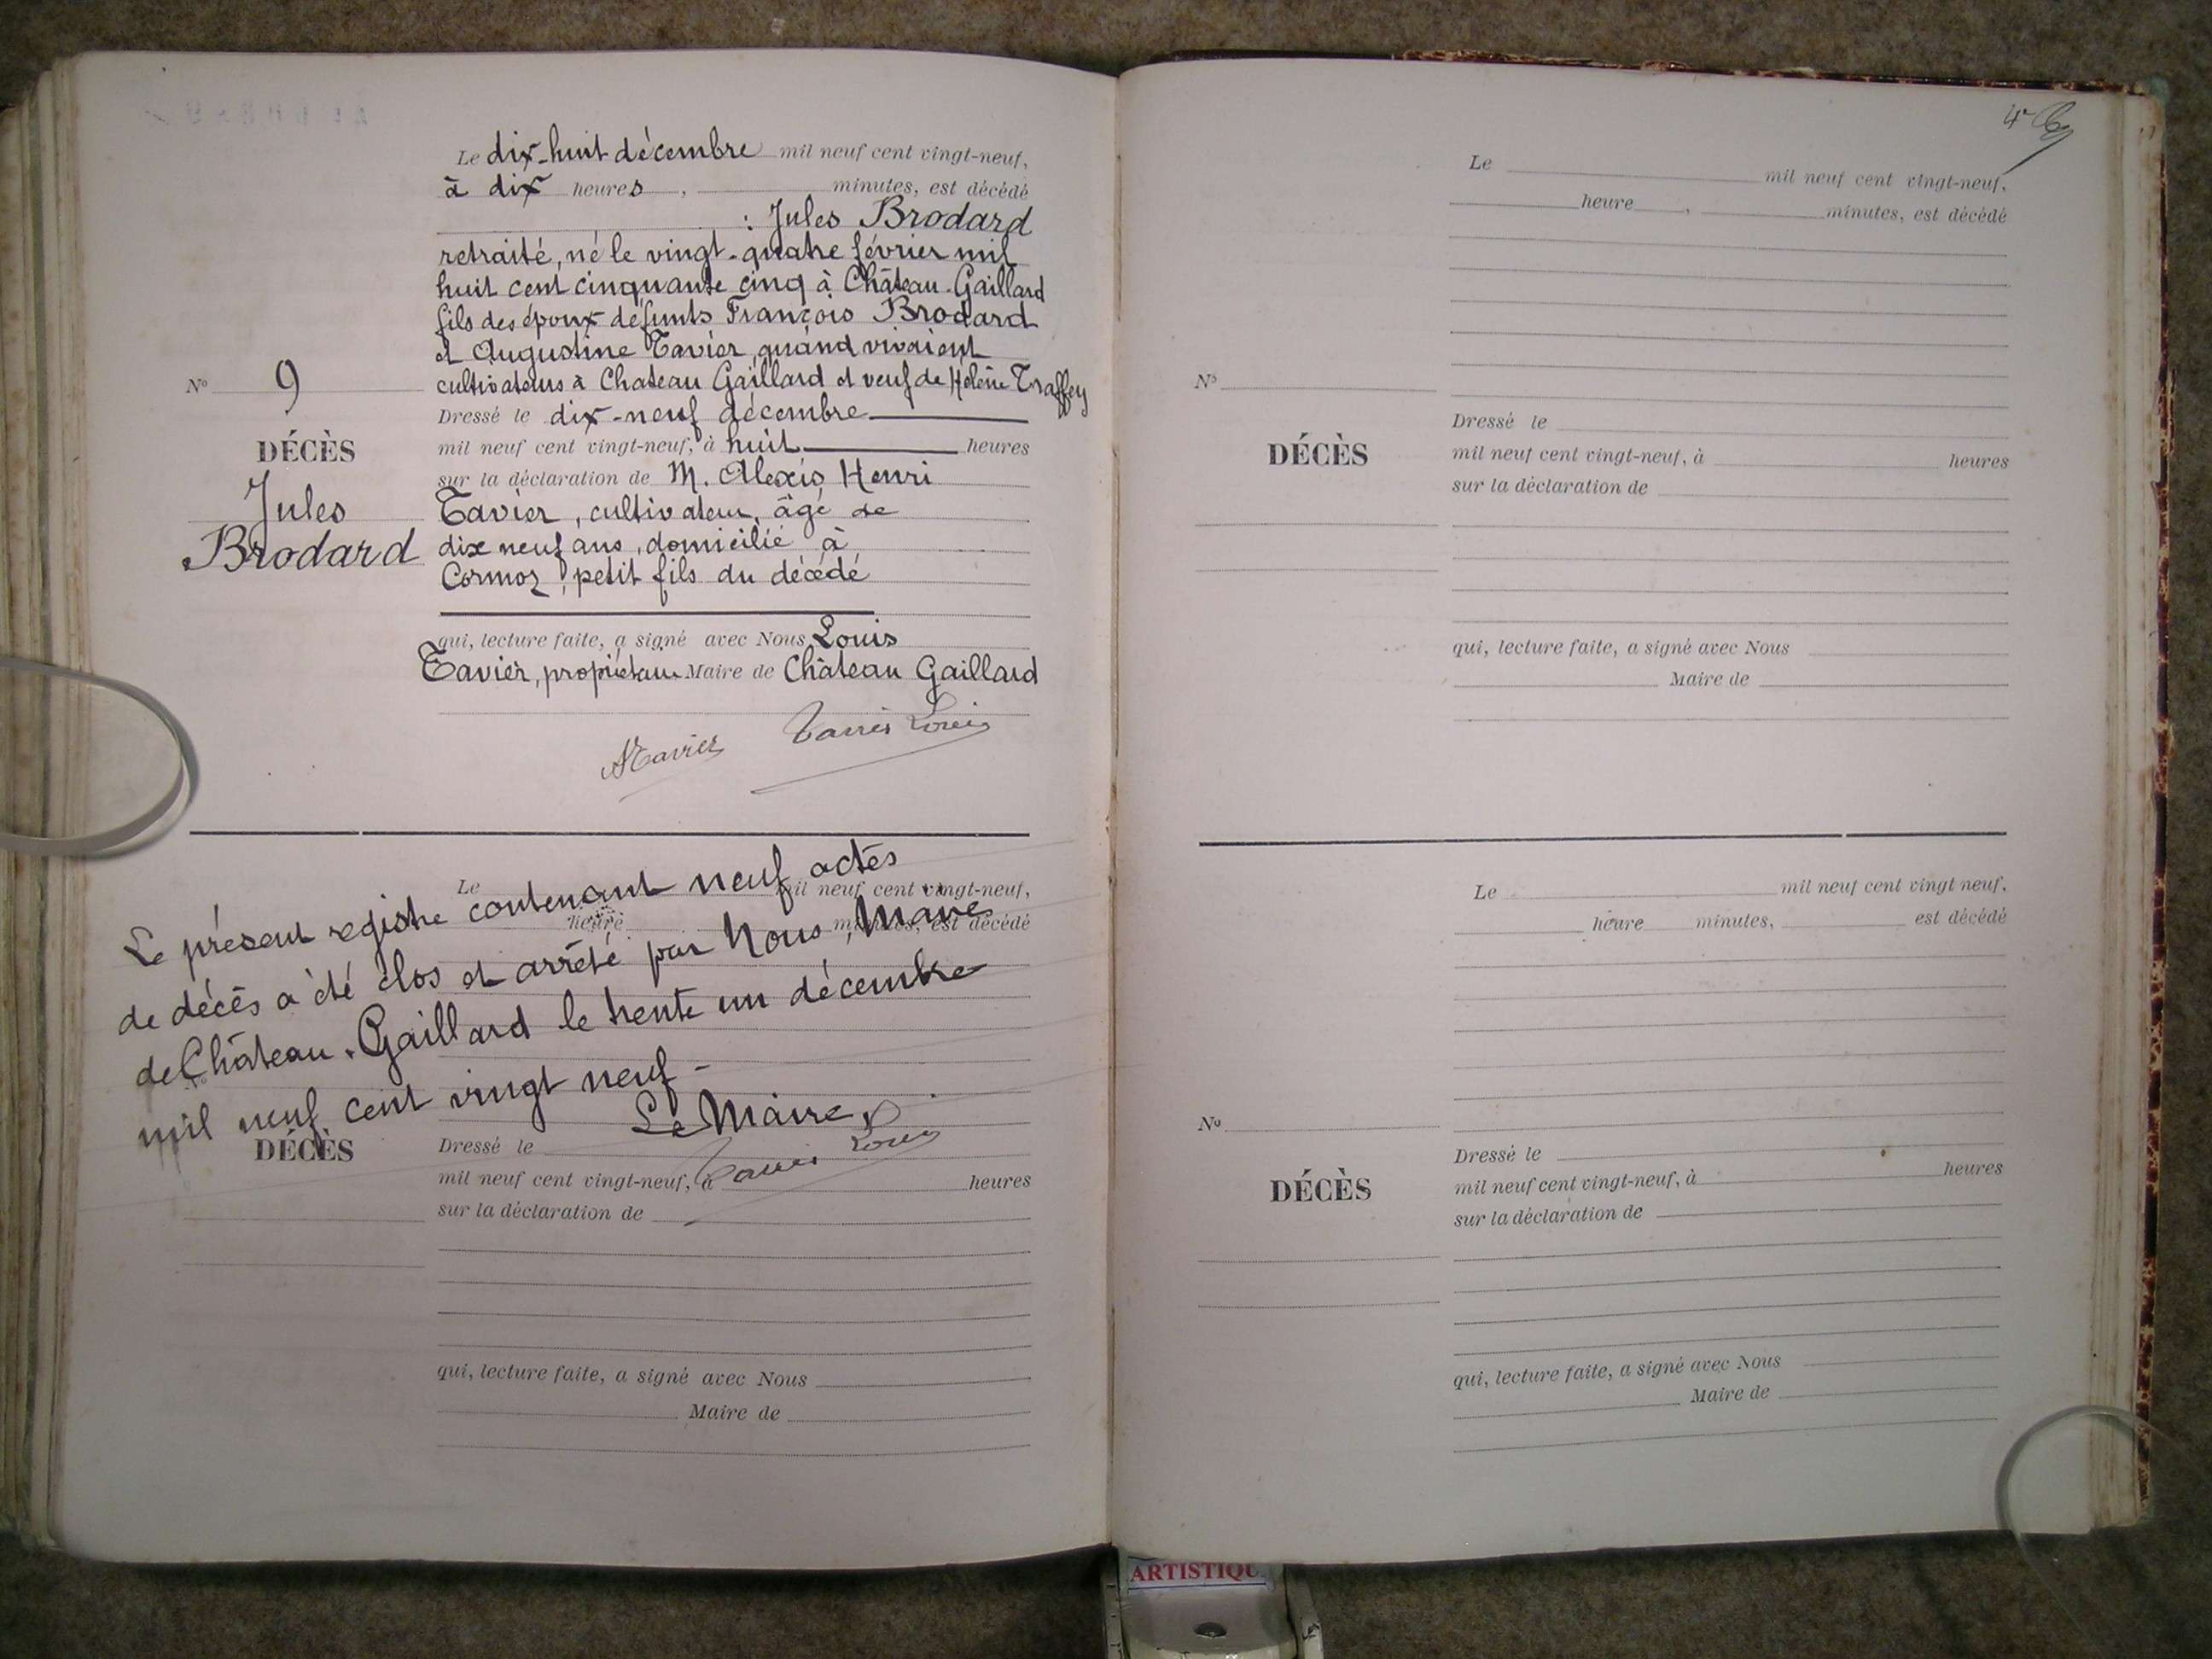 Le dix-huit décembre mil neuf cent vingt-neuf,
à dix heures, minutes, est décédé
: Jules Brodard
retraité, né le vingt-quatre février mil
huit cent cinquante cinq à Château-Gaillard
fils des époux défunts François Brodard
et Augustine Tavier, quand vivaient
N° 9
cultivateurs à Chateau Gaillard et veuf de Hélène Traffey
Dressé le dix-neuf décembre
DÉCÈS
mil neuf cent vingt-neuf, à huit heures
sur la déclaration de M. Alexis Henri
Jules
Tavier, cultivateur, âgé de
Brodard
dix neuf ans, domicilié à
Cormoz, petit fils du décédé
qui, lecture faite, a signé avec Nous Louis
Tavier, propriétaire Maire de Château Gaillard
Tavier Tavier Louis
Le mil neuf cent vingt-neuf,
heure minutes, est décédé
Le présent registre contenant neuf actes
de décès a été clos et arrêté par Nous, Maire
de Château-Gaillard le trente un décembre
mil neuf cent vingt neuf -
Le Maire,
Tavier Louis
DÉCÈS
Dressé le
mil neuf cent vingt-neuf, à heures
sur la déclaration de
qui, lecture faite, a signé avec Nous
Maire de
4e
Le mil neuf cent vingt-neuf,
heure, minutes, est décédé
N°
Dressé le
DÉCÈS
mil neuf cent vingt-neuf, à heures
sur la déclaration de
qui, lecture faite, a signé avec Nous
Maire de
Le mil neuf cent vingt neuf,
heure minutes, est décédé
N°
Dressé le
DÉCÈS
mil neuf cent vingt-neuf, à heures
sur la déclaration de
qui, lecture faite, a signé avec Nous
Maire de
ARTISTIQU